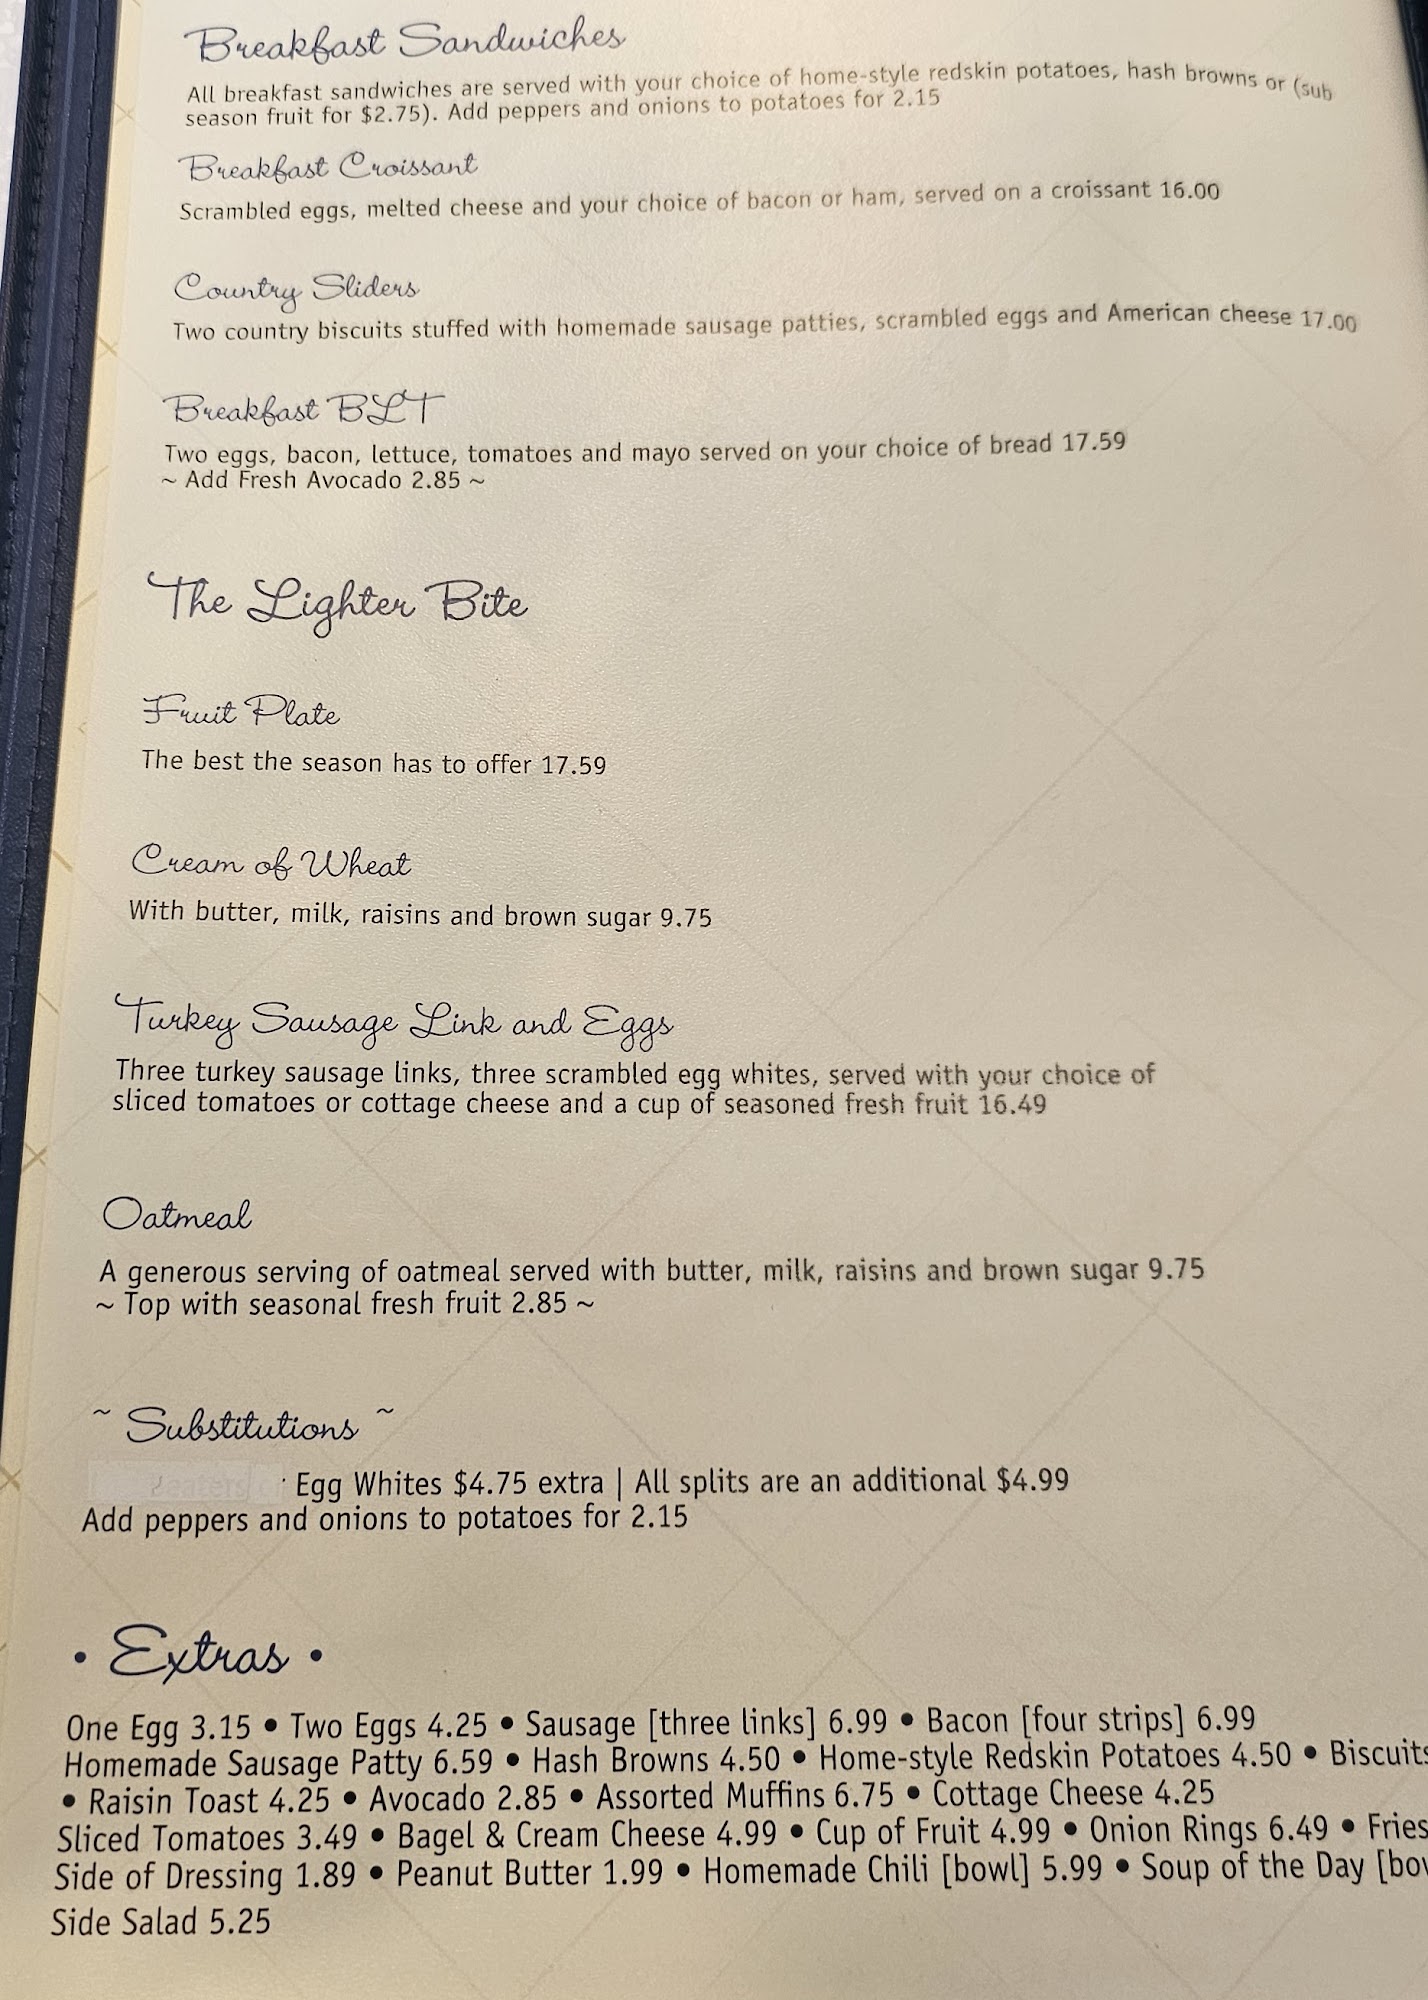 Breakfast Sandwiches
All breakfast sandwiches are served with your choice of home-style redskin potatoes, hash browns or (sub
season fruit for $2.75). Add peppers and onions to potatoes for 2.15
Breakfast Croissant
Scrambled eggs, melted cheese and your choice of bacon or ham, served on a croissant 16.00
Country Sliders
Two country biscuits stuffed with homemade sausage patties, scrambled eggs and American cheese 17.00
Breakfast BLT
Two eggs, bacon, lettuce, tomatoes and mayo served on your choice of bread 17.59
~ Add Fresh Avocado 2.85 ~
The Lighter Bite
Fruit Plate
The best the season has to offer 17.59
Cream of Wheat
With butter, milk, raisins and brown sugar 9.75
Turkey Sausage Link and Eggs
Three turkey sausage links, three scrambled egg whites, served with your choice of
sliced tomatoes or cottage cheese and a cup of seasoned fresh fruit 16.49
Oatmeal
A generous serving of oatmeal served with butter, milk, raisins and brown sugar 9.75
~ Top with seasonal fresh fruit 2.85 ~
~ Substitutions ~
Egg Whites $4.75 extra | All splits are an additional $4.99
Add peppers and onions to potatoes for 2.15
• Extras •
One Egg 3.15 • Two Eggs 4.25 • Sausage [three links] 6.99 • Bacon [four strips] 6.99
Homemade Sausage Patty 6.59 • Hash Browns 4.50 • Home-style Redskin Potatoes 4.50 • Biscuits
• Raisin Toast 4.25 • Avocado 2.85 • Assorted Muffins 6.75 • Cottage Cheese 4.25
Sliced Tomatoes 3.49 • Bagel & Cream Cheese 4.99 • Cup of Fruit 4.99 • Onion Rings 6.49 • Fries
Side of Dressing 1.89 • Peanut Butter 1.99 • Homemade Chili [bowl] 5.99 • Soup of the Day
Side Salad 5.25